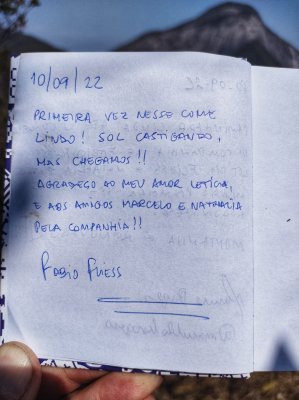 10/09/22
PRIMEIRA VEZ NESSE CUME
LINDO! SOL CASTIGANDO,
MAS CHEGAMOS!!
AGRADEÇO AO MEU AMOR LETÍCIA,
E AOS AMIGOS MARCELO E NATHALIA
PELA COMPANHIA!!
FABIO FLIESS